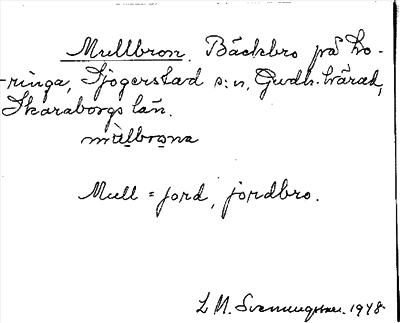 Mullbron. Bäckbro på Ko-
ringa, Sjogerstad s:n, Gudh. härad,
Skaraborgs län.
mùlbrona
Mull = jord, jordbro.
L M. Svenungsson. 1948